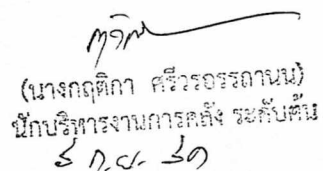 (นางกฤติกา ศรีวรอรรถานนท์)
นักบริหารงานการคลัง ระดับต้น
ก.ย.